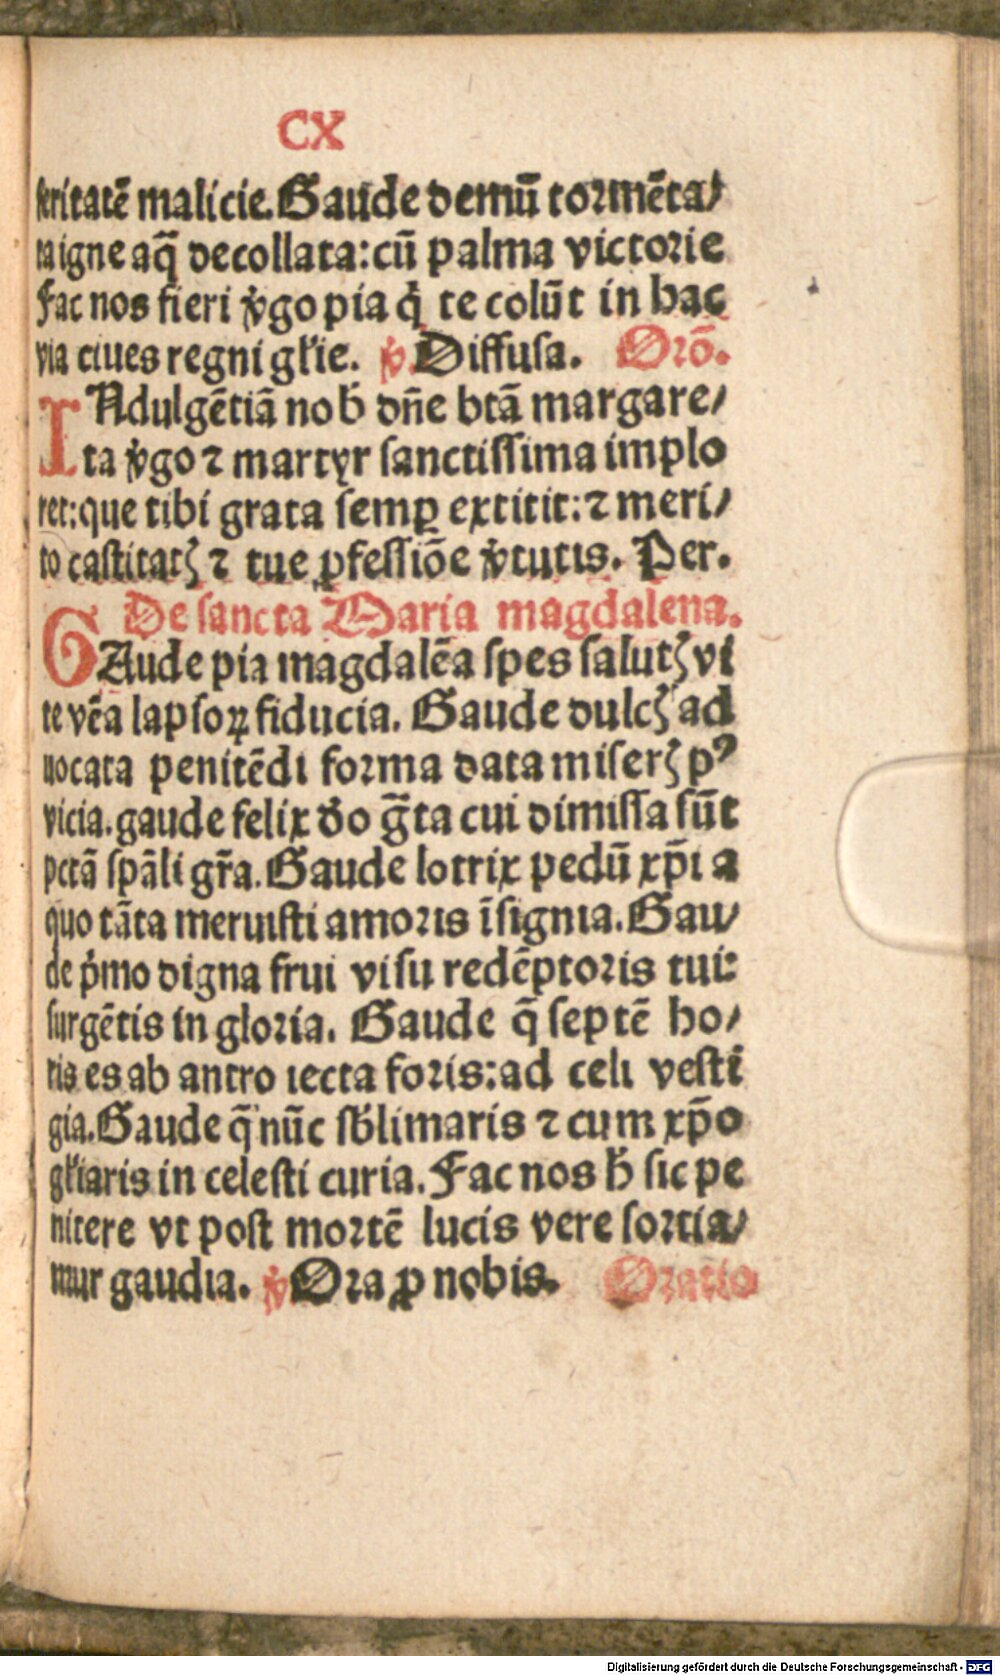 CX
feritatē malicie. Gaude demū tormēta/
ta igne aq̄ decollata: cū palma victorie
Fac nos fieri v̓go pia q̇ te colūt in hac
via ciues regni gl̓ie. ℣. Diffusa. Orō.
INdulgētiā nob̄ dn̄e btā margare/
ta v̓go ⁊ martyr sanctissima implo
ret: que tibi grata semꝑ extitit: ⁊ meri/
to castitatꝭ ⁊ tue ꝓfessiōe v̓tutis. Per.
De sancta Maria magdalena.
GAude pia magdalēa spes salutꝭ vi
te vēa lapsoꝝ fiducia. Gaude dulcꝭ ad
uocata penitēdi forma data miserꝭ pꝰ
vicia. gaude felix d̓o g̃ta cui dimissa sūt
pctā sp̄ali gr̄a. Gaude lotrix pedū xp̄i a
quo tāta meruisti amoris īsignia. Gau/
de p̓mo digna frui visu redēptoris tui:
surgētis in gloria. Gaude q̄ septē ho/
ris es ab antro iecta foris: ad celi vesti
gia. Gaude q̄ nūc sb̓limaris ⁊ cum xp̄o
gl̓iaris in celesti curia. Fac nos h̄ sic pe
nitere vt post mortē lucis vere sortia/
mur gaudia. ℣ Ora ꝓ nobis. Oratio
Digitalisierung gefördert durch die Deutsche Forschungsgemeinschaft - DFG